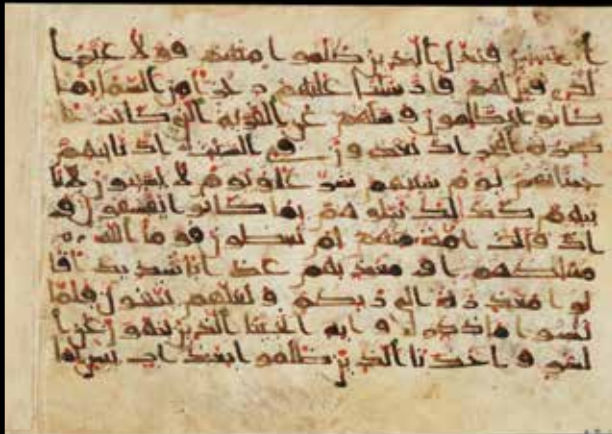 محسنين فبدل الذين ظلموا منهم قولا غير ا
لذي قيل لهم فارسلنا عليهم رجزا من السما بما
كانوا يظلمون وسلهم عن القرية التي كانت حا
ضرة البحر اذ يعدون في السبت اذ تاتيهم
حيتانهم يوم سبتهم شرعا ويوم لا يسبتون لا تا
تيهم كذلك نبلوهم بما كانوا يفسقون و
اذ قالت امة منهم لم تعظون قوما الله
مهلكهم او معذبهم عذابا شديدا قا
لوا معذرة الى ربكم ولعلهم يتقون فلما
نسوا ما ذكروا به انجينا الذين ينهون عن ا
لسو واخذنا الذين ظلموا بعذاب بئيس بما